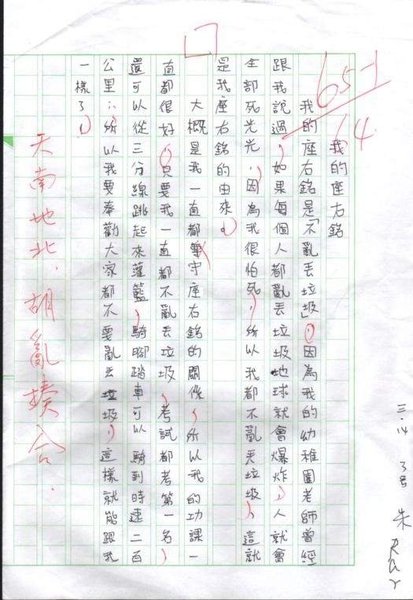 三.14 3號 朱
65-1
64
我的座右銘
我的座右銘是「不亂丟垃圾」，因為我的幼稚園老師曾經
跟我說過，如果每個人都亂丟垃圾地球就會爆炸，人就會
全部死光光，因為我很怕死，所以我都不亂丟垃圾，這就
是我座右銘的由來。
大概是我一直都遵守座右銘的關係，所以我的功課一
直都很好，只要我一直都不亂丟垃圾，考試都考第一名，
還可以從三分線跳起來灌籃，騎腳踏車可以騎到時速二百
公里，所以我要奉勸大家都不要亂丟垃圾，這樣就能跟我
一樣了。
天南地北，胡亂揍合．